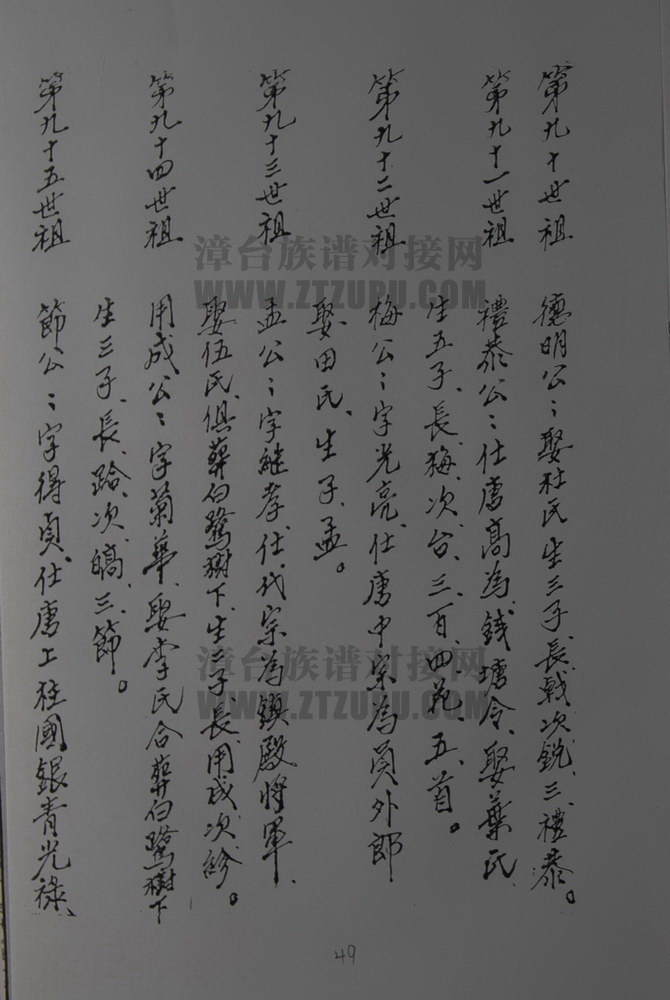 第九十世祖 德明公〻娶杜氏生三子、長戟次銳、三禮泰。
第九十一世祖 禮泰公〻仕唐高為錢塘令、娶葉氏
生五子、長梅、次台、三百、四花、五首。
第九十二世祖 梅公〻字光亮、仕唐中宗為員外郎
娶田氏、生子、孟。
第九十三世祖 孟公〻字継孝、仕代宗為鎮殿將軍、
娶伍氏、俱葬白鷺樹下、生二子、長、用成、次紗。
第九十四世祖 用成公〻字菊華、娶李氏合葬白鷺樹下
生三子、長、跲、次、皜、三、節。
第九十五世祖 節公〻字得貞、仕唐上柱國銀青光祿、
49
漳台族谱对接网
WWW.ZTZUPU.COM
漳台族谱对接网
WWW.ZTZUPU.COM